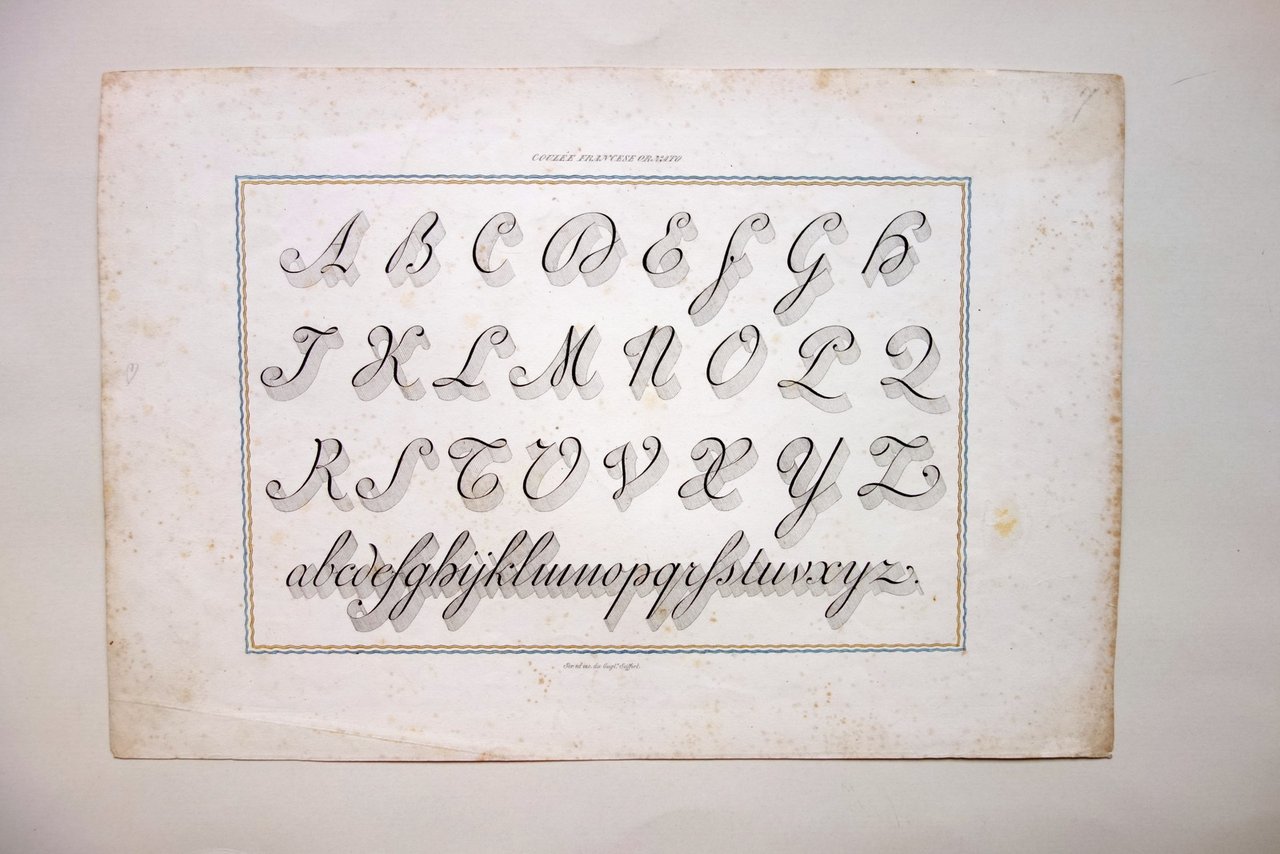 7
COULÉE FRANCESE ORNATO
A B C D E F G H
I K L M N O P Q
R S T U V X Y Z
abcdefghijklmnopqrſstuvxyz.
Scr. ed inc. da Gugl.º